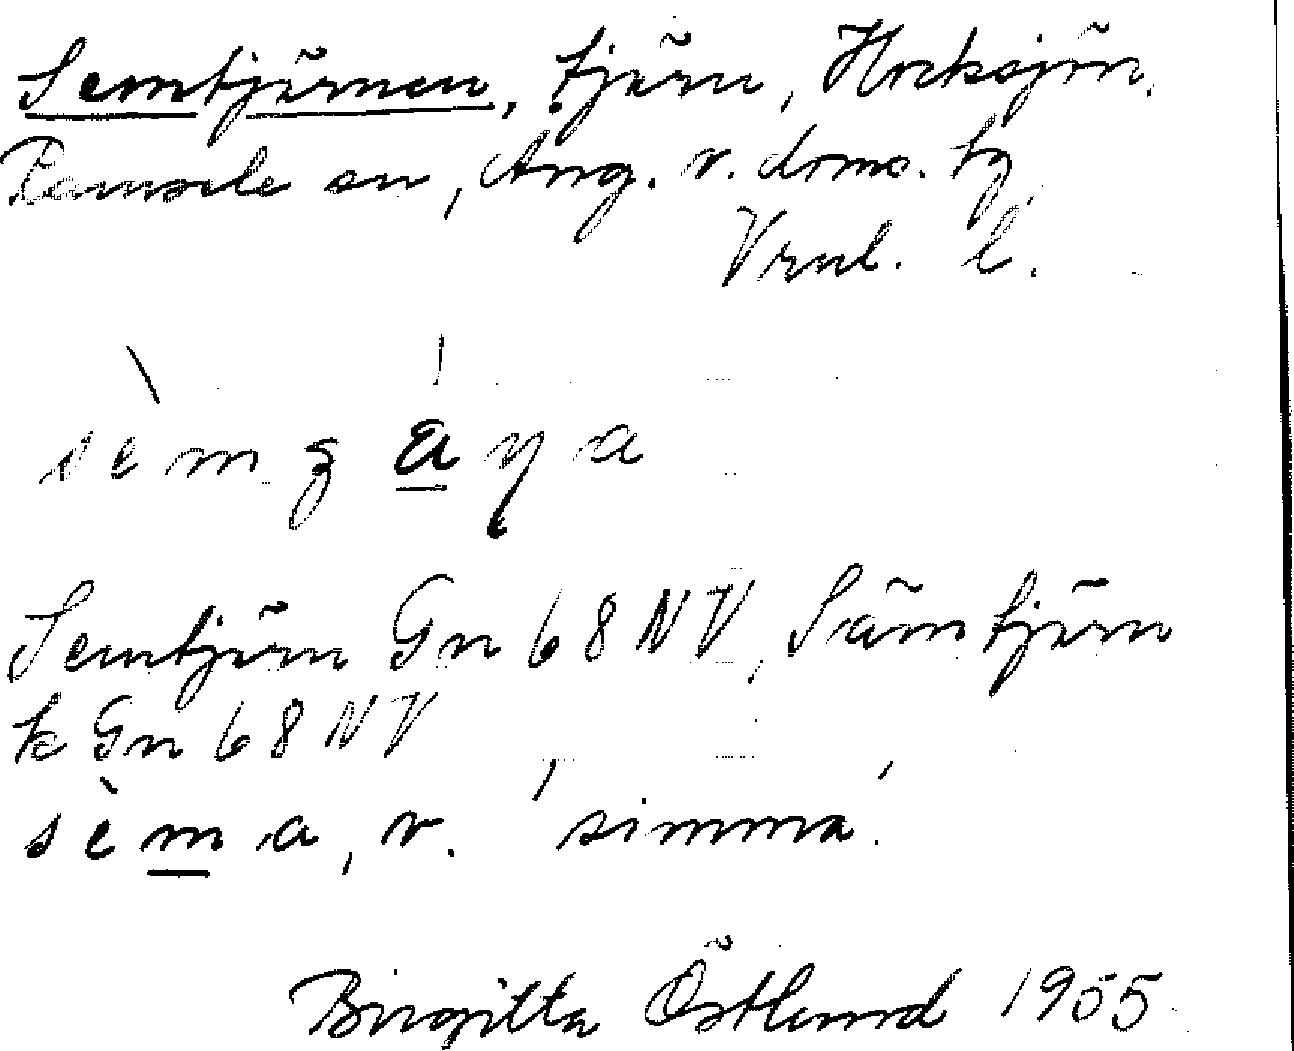 Semtjärnen, tjärn, Hocksjön,
Ramsele sn, Ång. v. doms. tg
Vrnl. l.
sèmʒáɳa
Semtjärn Gn 68 NV, Sämtjärn
k Gn 68 NV
sèma, v. 'simma'.
Birgitta Östlund 1955